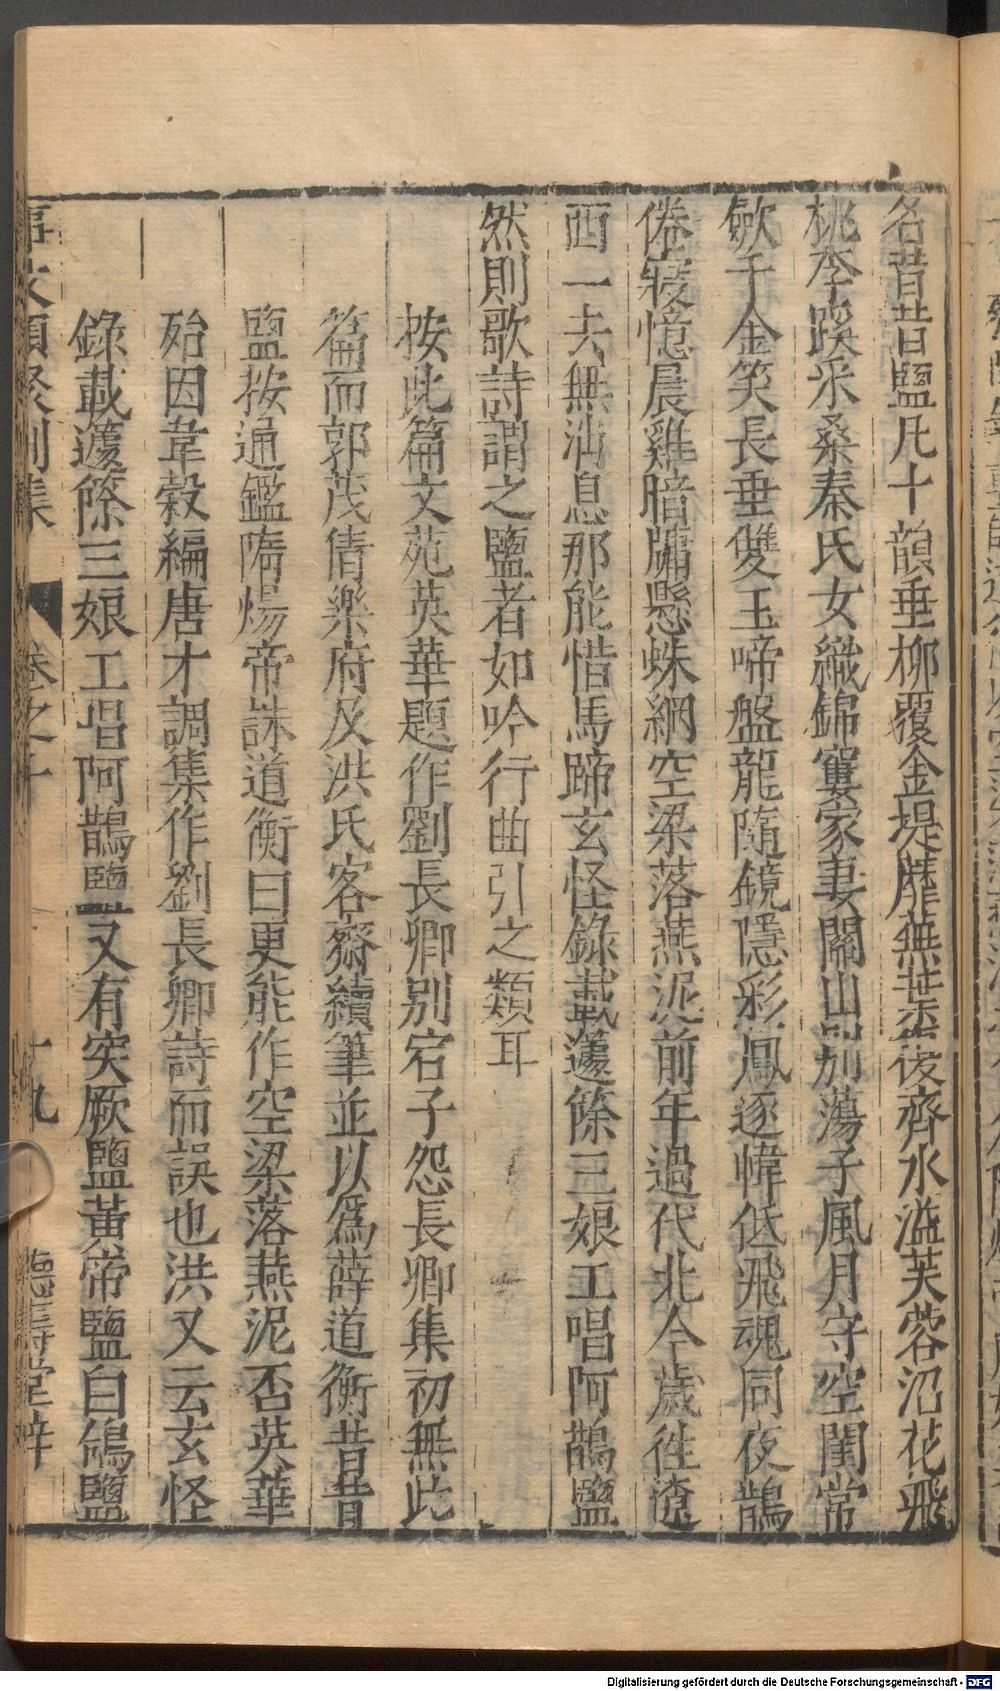 名昔昔鹽凡十韻垂柳覆金堤蘼蕪葉復齊水溢芙蓉沼花飛
桃李蹊采桑秦氏女織錦竇家妻關山別蕩子風月守空閨常
歛千金笑長垂雙玉啼盤龍隨鏡隱彩鳳逐幃低飛魂同夜鵲
倦寢憶晨雞暗牖懸蛛網空梁落燕泥前年過代北今歲徃遼
西一去無消息那能惜馬蹄玄怪錄載籧篨三娘工唱阿鵲鹽
然則歌詩謂之鹽者如吟行曲引之類耳
按此篇文苑英華題作劉長卿别宕子怨長卿集初無此
篇而郭茂倩樂府及洪氏客齋續筆並以爲薛道衡昔昔
鹽按通鑑隋煬帝誅道衡曰更能作空梁落燕泥否英華
殆因韋縠編唐才調集作劉長卿詩而誤也洪又云玄怪
錄載籧篨三娘工唱阿鵲鹽又有突厥鹽黃帝鹽白鴿鹽
事文類聚別集 卷之十 十九 德壽堂梓
Digitalisierung gefördert durch die Deutsche Forschungsgemeinschaft - DFG